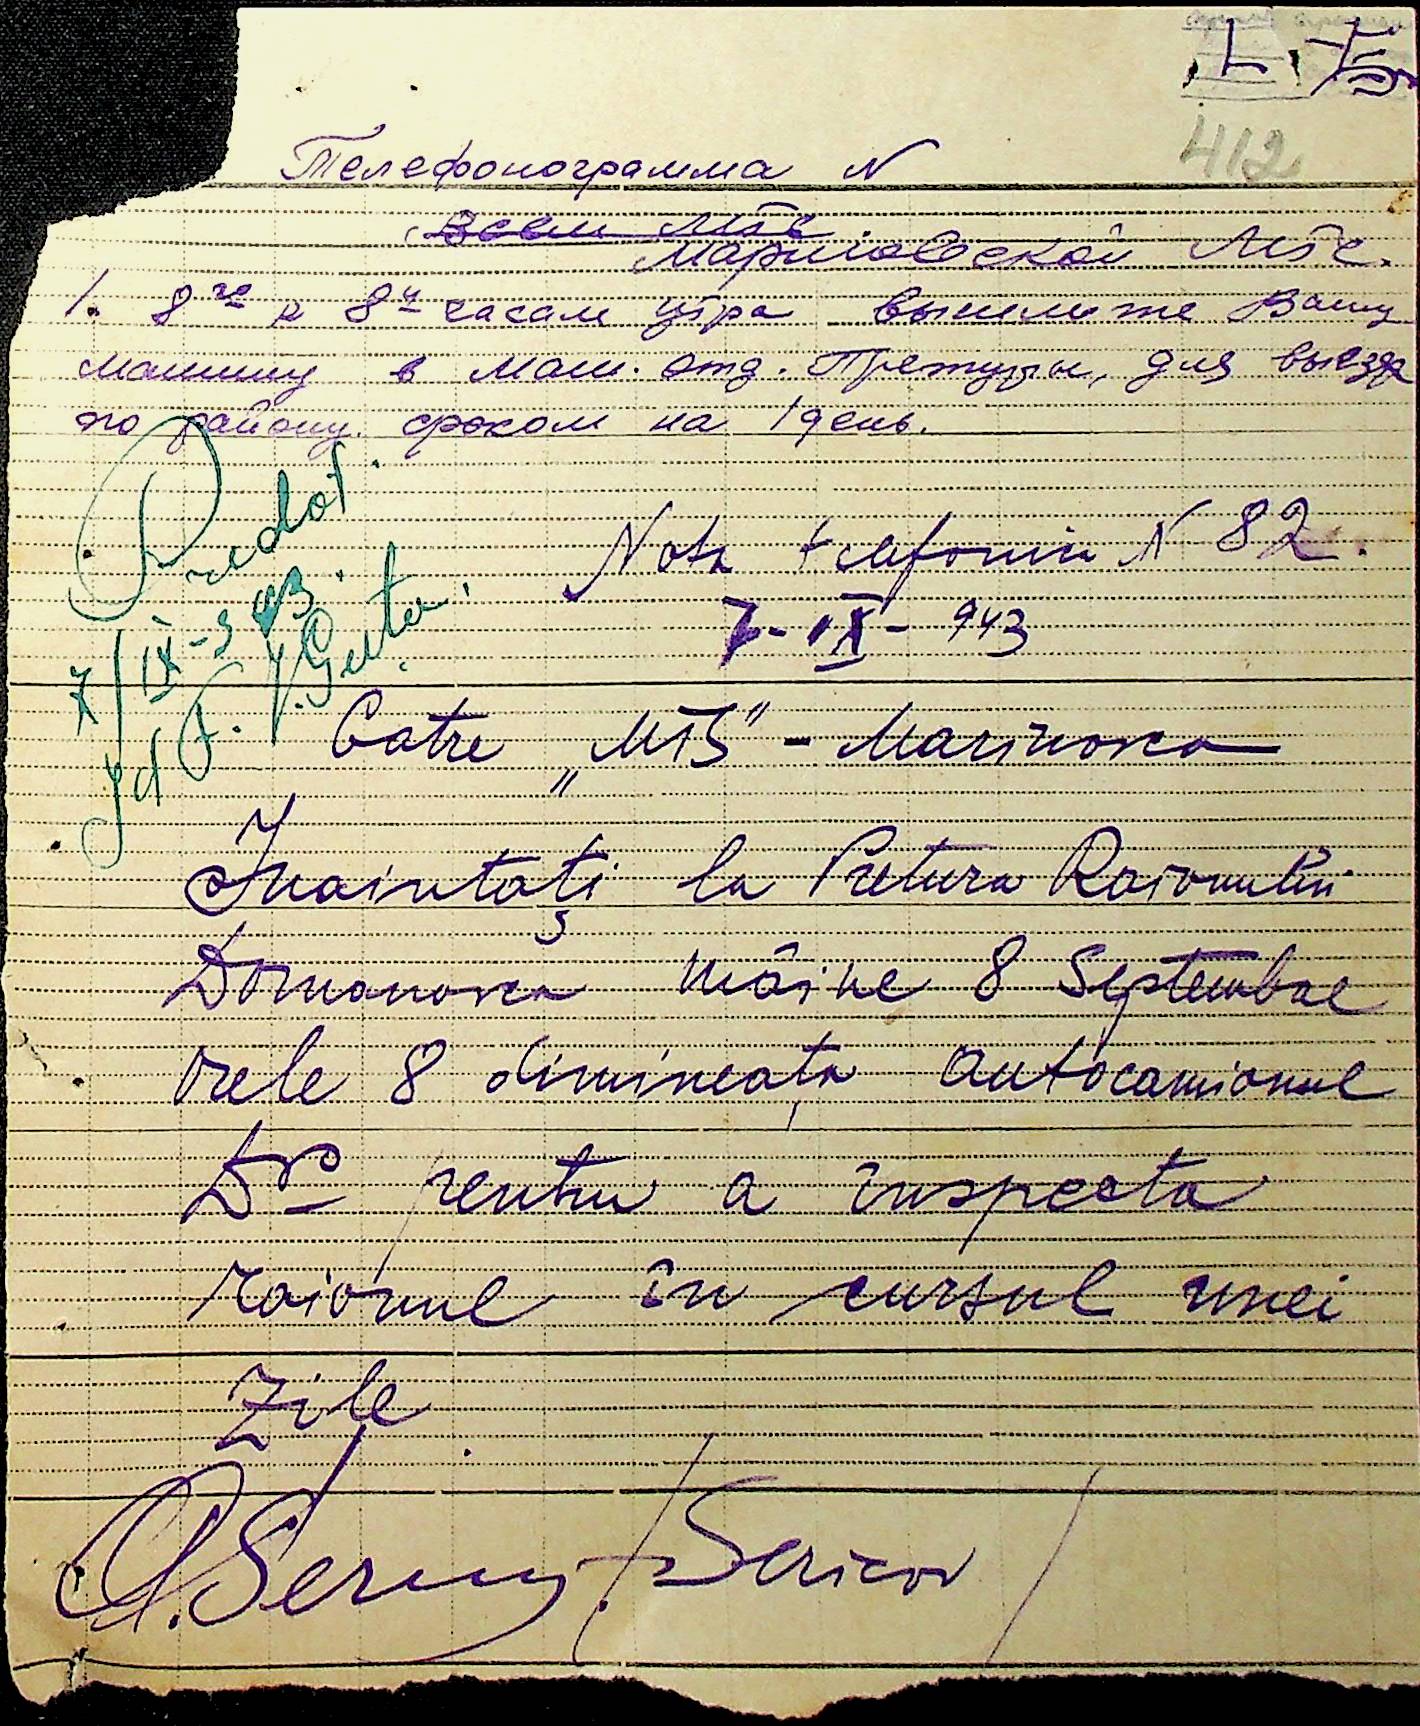 412
Телефонограмма N
Всем МТС
Мариновской МТС.
1. 8го к 8ч часам утра вышлите Вашу
машину в маш. отд. Претуры, для выезда
по району сроком на 1 день.
Predat.
7/IX-943.
Nota telefonica N 82.
7-IX-943
Catre „MTS" - Marinovca
Inaintați la Pretura Raionului
Domanovca mâine 8 Septembrie
orele 8 dimineața autocamionul
Dv pentru a inspecta
raionul în cursul unei
zile
/Sericov/